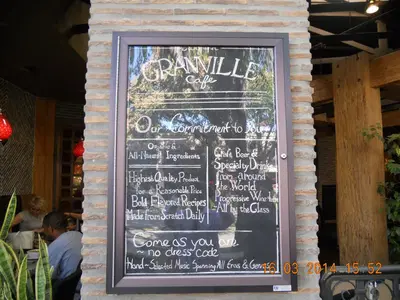 GRANVILLE
Cafe
Our Commitment to You
All-Natural Ingredients
Highest Quality Product
for a Reasonable Price
Bold Flavored Recipes
Made from Scratch Daily
Craft Beer &
Specialty Drinks
from around
the World
Progressive Wine Lists
~All by the Glass
Come as you are
~ no dress code
Hand-Selected Music Spanning All Eras & Genres
16 03 2014 15:52